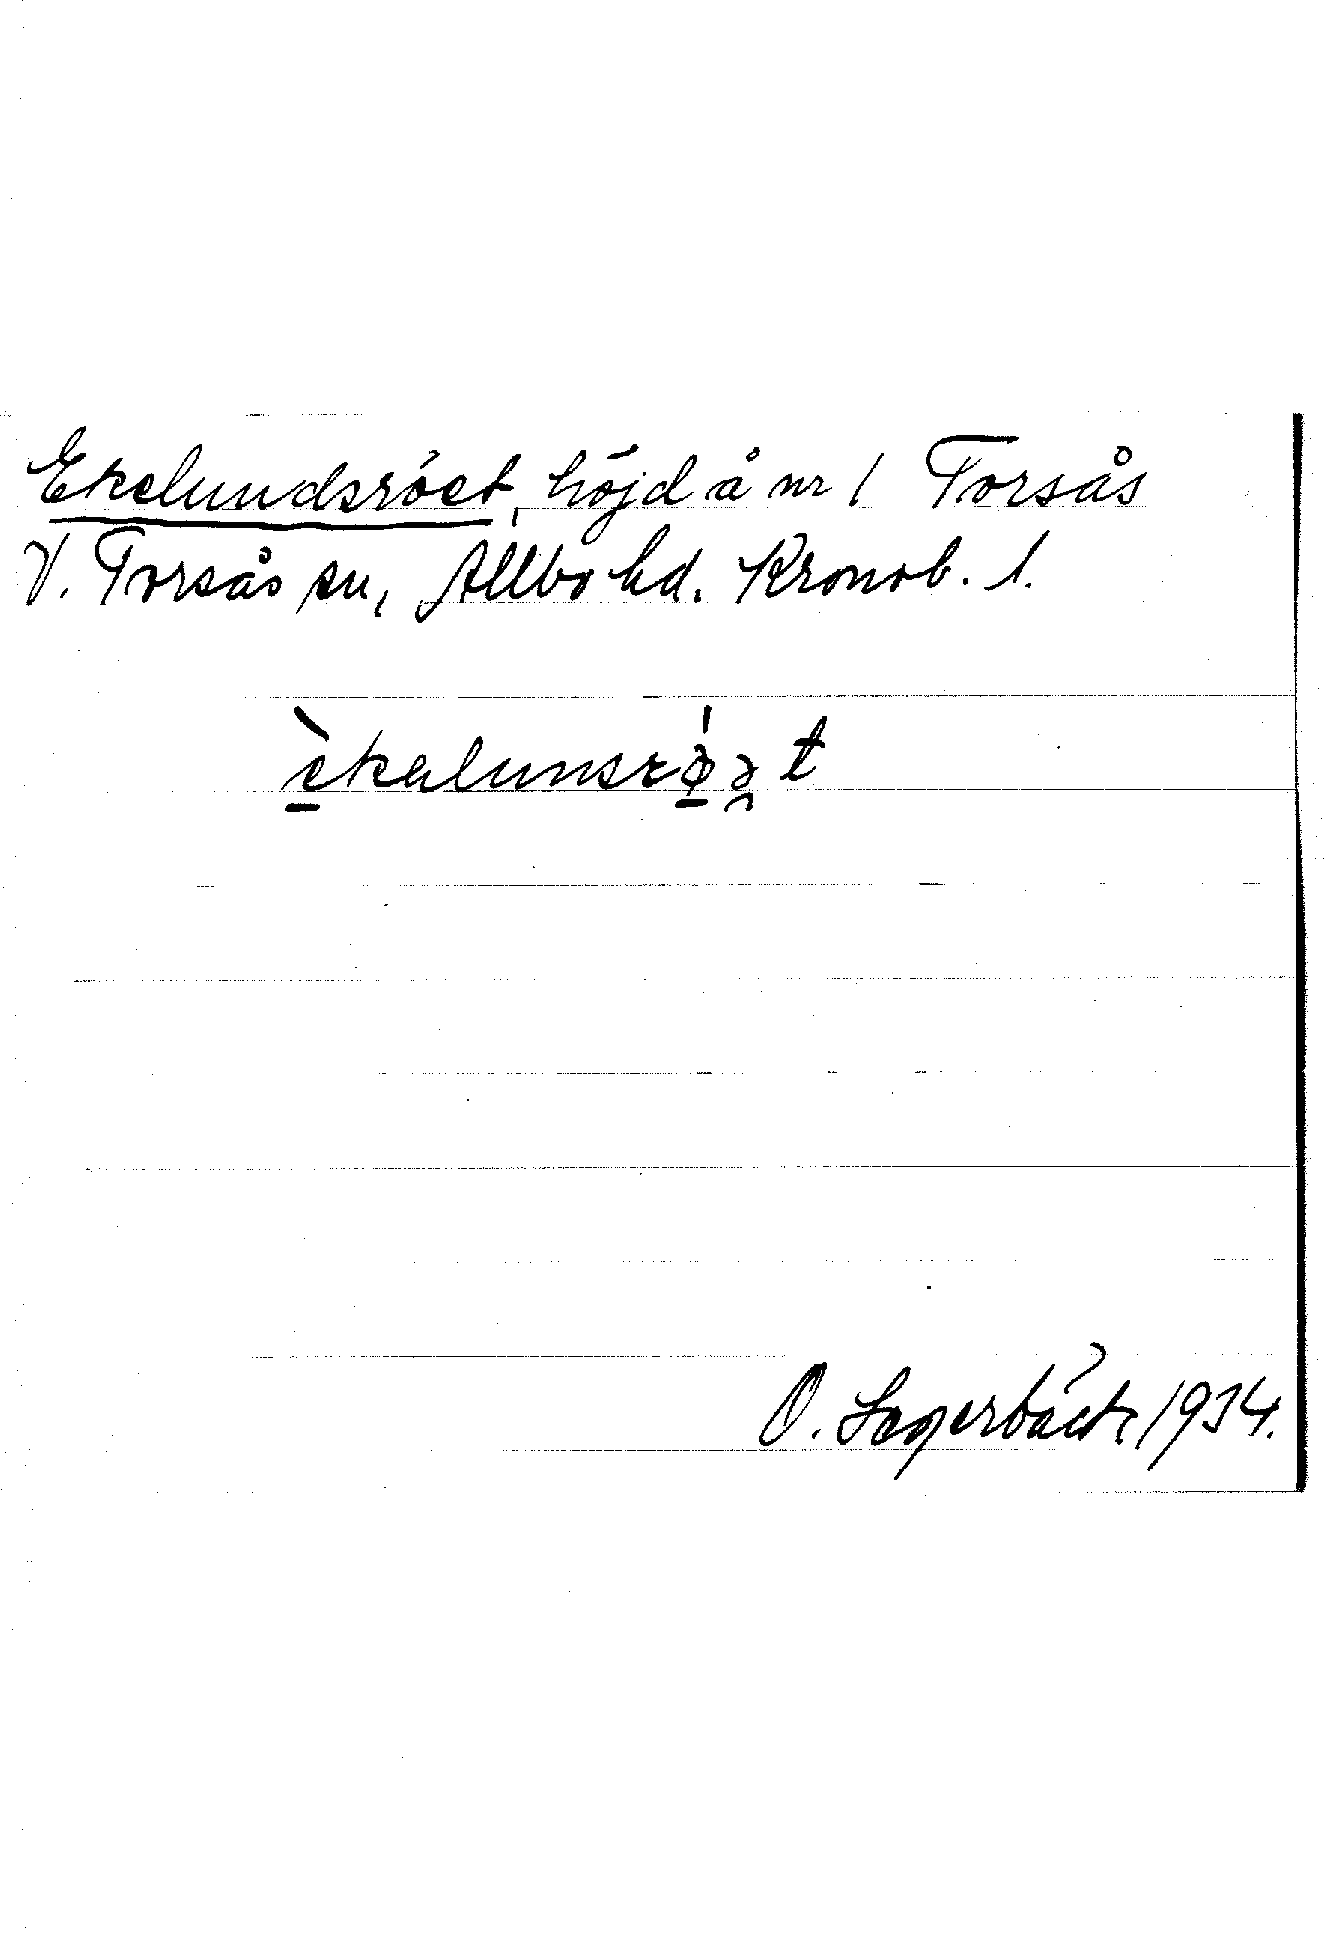 Ekelundsröet, höjd å nr 1 Torsås
V. Torsås sn, Allbo hd. Kronob. l.
è̱kalunsrǿ̱ə̯t
O. Lagerbäck 1934.